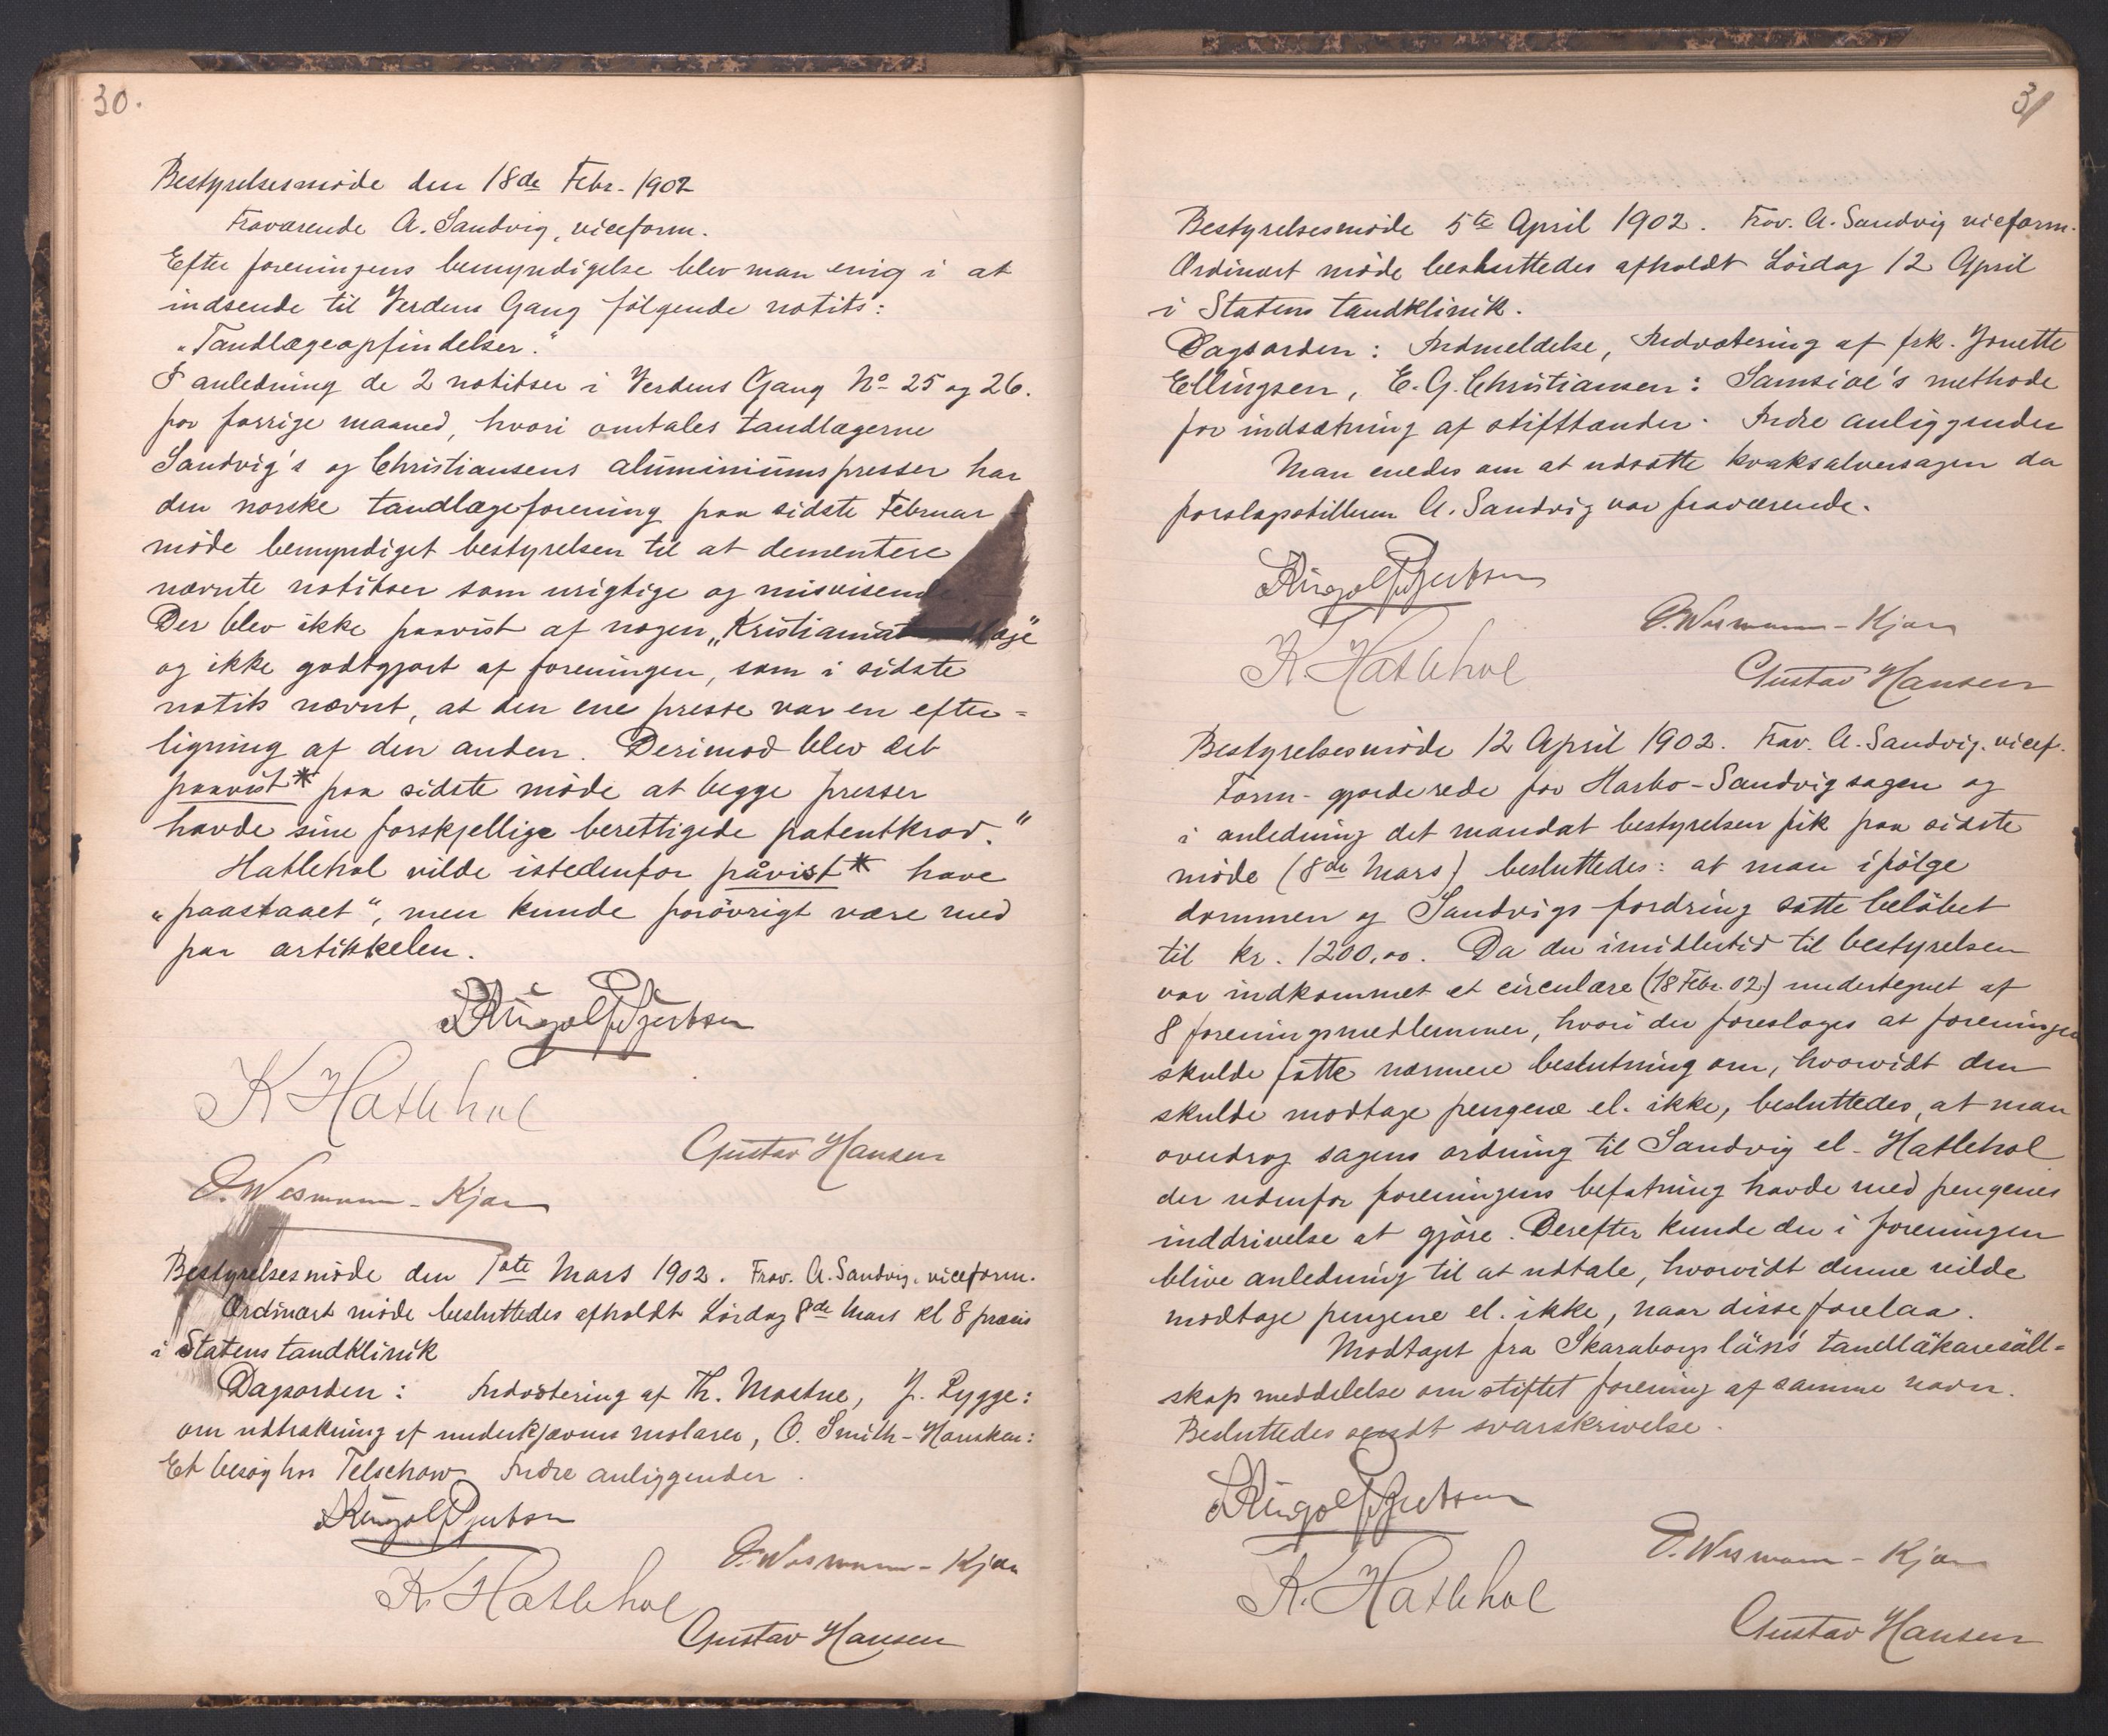 30.
Bestyrelsesmöde den 18de Febr. 1902
Fraværende A. Sandvig, viceform.
Efter foreningens bemyndigelse blev man enig i at
indsende til Verdens Gang følgende notits:
"Tandlægeopfindelser."
I anledning de 2 notitser i Verdens Gang No 25 og 26.
for forrige maaned, hvori omtales tandlægerne
Sandvig's og Christiansens aluminiumspresser har
den norske tandlægeforening paa sidste Februar
möde bemyndiget bestyrelsen til at dementere
nævnte notitser som urigtige og misvisende.
Der blev ikke paavist af nogen „Kristianiatandlæge"
og ikke godtgjort af foreningen, som i sidste
notits nævnt, at den ene presse var en efter=
ligning af den anden. Derimod blev det
paavist* paa sidste möde at begge presser
havde sine forskjellige berettigede patentkrav."
Hatlehol vilde istedenfor påvist* have
"paastaaet", men kunde forövrigt være med
paa artikkelen.
K Hatlehol
Gustav Hansen
O. Wesmann-Kjær
Bestyrelsesmöde den 1ste Mars 1902. Frav. A. Sandvig. viceform.
Ordinært möde besluttedes afholdt Lördag 8de Mars kl 8 præcis
i Statens tandklinik
Dagsorden: Indvotering af Th. Mostue, J. Rygge:
om udtrækning af underkjævens molarer, O. Smith-Housken:
Et besög hos Telschow. Andre anliggender.
O. Wesmann-Kjær
K. Hatlehol
Gustav Hansen
31
Bestyrelsesmöde 5te April 1902. Frav. A. Sandvig viceform.
Ordinært möde besluttedes afholdt Lördag 12 April
i Statens tandklinik.
Dagsorden: Indmeldelse, Indvotering af frk. Jonette
Ellingsen, E. G. Christiansen: Samsioe's methode
for indsætning af stifttænder. Andre anliggender
Man enedes om at udsætte kvaksalversagen da
forslagsstilleren A. Sandvig var fraværende.
O. Wesmann-Kjær
K. Hatlehol
Gustav Hansen
Bestyrelsesmöde 12 April 1902. Frav. A. Sandvig. vicef.
Form. gjorde rede for Harbo-Sandvigsagen og
i anledning det mandat bestyrelsen fik paa sidste
möde (8de Mars) besluttedes: at man ifölge
dommen og Sandvigs fordring satte belöbet
til kr. 1200,00. Da der imidlertid til bestyrelsen
var indkommet et circulære (18 Febr. 02) undertegnet af
8 foreningsmedlemmer, hvori der foreslages at foreningen
skulde fatte nærmere beslutning om, hvorvidt den
skulde modtage pengene el. ikke, besluttedes, at man
overdrog sagens ordning til Sandvig el. Hatlehol
der udenfor foreningens befatning havde med pengenes
inddrivelse at gjöre. Derefter kunde der i foreningen
blive anledning til at udtale, hvorvidt denne vilde
modtage pengene el. ikke, naar disse forelaa.
Modtaget fra Skaraborgs läns tandläkaresäll=
skap meddelelse om stiftet forening af samme navn.
Besluttedes sendt svarskrivelse.
O. Wesmann-Kjær
K. Hatlehol
Gustav Hansen